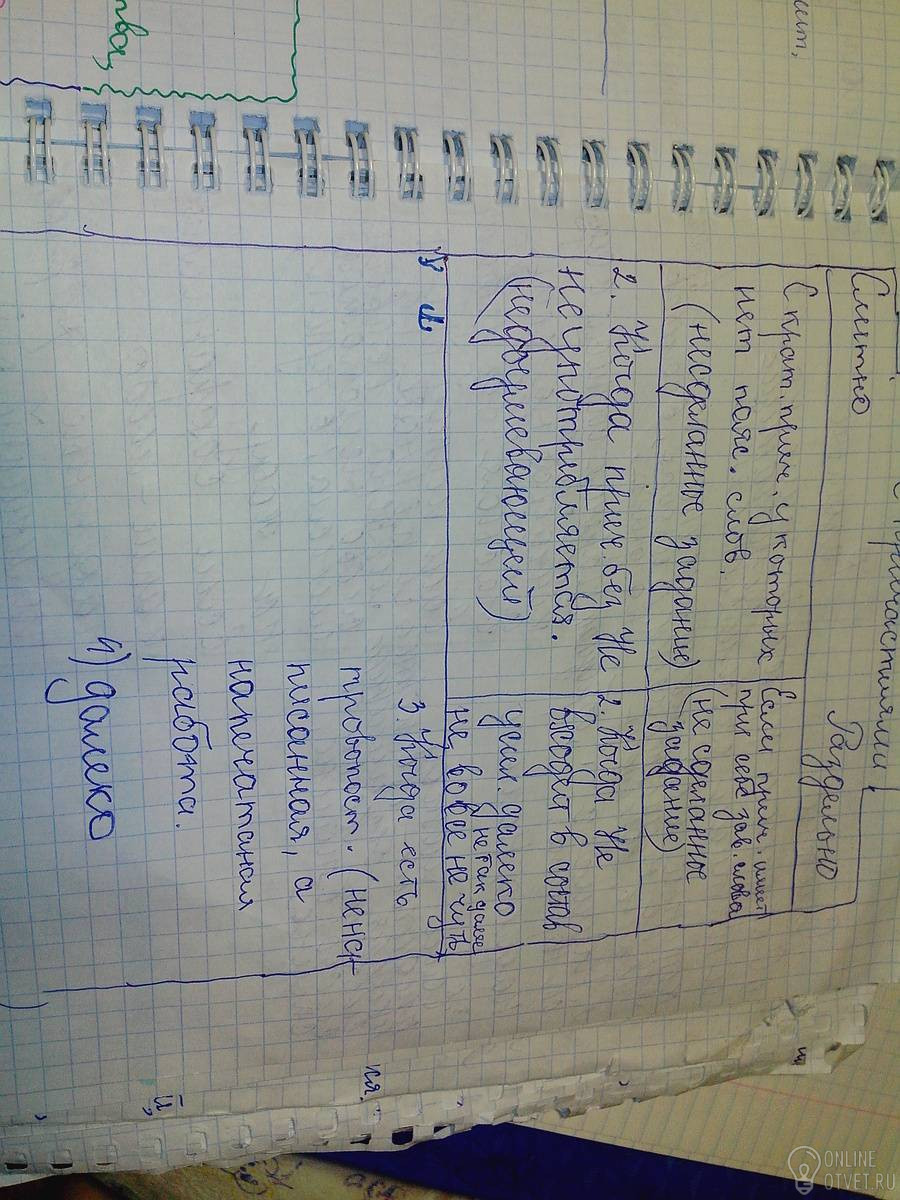 с причастиями
Слитно
Раздельно
С крат. прич. у которых
нет пояс. слов.
(несделанное задание)
2. Когда прич. без Не
не употребляется.
(недоумевающей)
Если прич. имеет
при себе зав. слова
(не сделанное
задание)
2. Когда Не
входит в состав
усил. далеко
не, вовсе не чуть
3. Когда есть
писанная, а
напечатаная
работа.
4) далеко
ONLINE
OTVET.RU